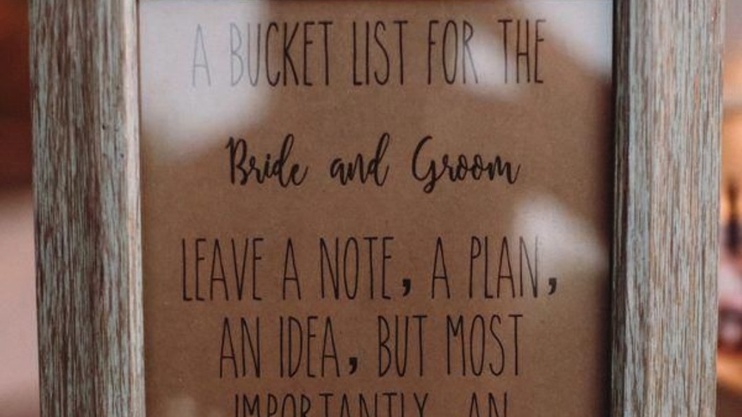 A BUCKET LIST FOR THE
Bride and Groom
LEAVE A NOTE, A PLAN,
AN IDEA, BUT MOST
IMPORTANTLY, AN